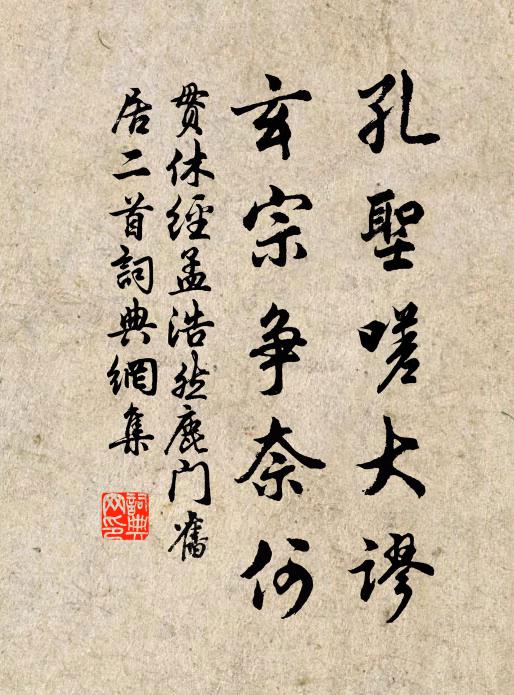 孔聖嗟大謬
玄宗争奈何
貫休經孟浩然鹿门舊
居二首詞典網集
詞典网印